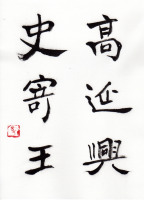 高延興
史寄王